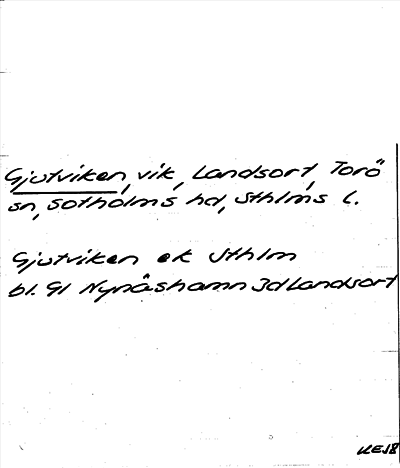 Gjutviken, vik, Landsort, Torö
sn, Sotholms hd, Sthlms l.
Gjutviken ek Sthlm
bl. 9I Nynäshamn 3d Landsort